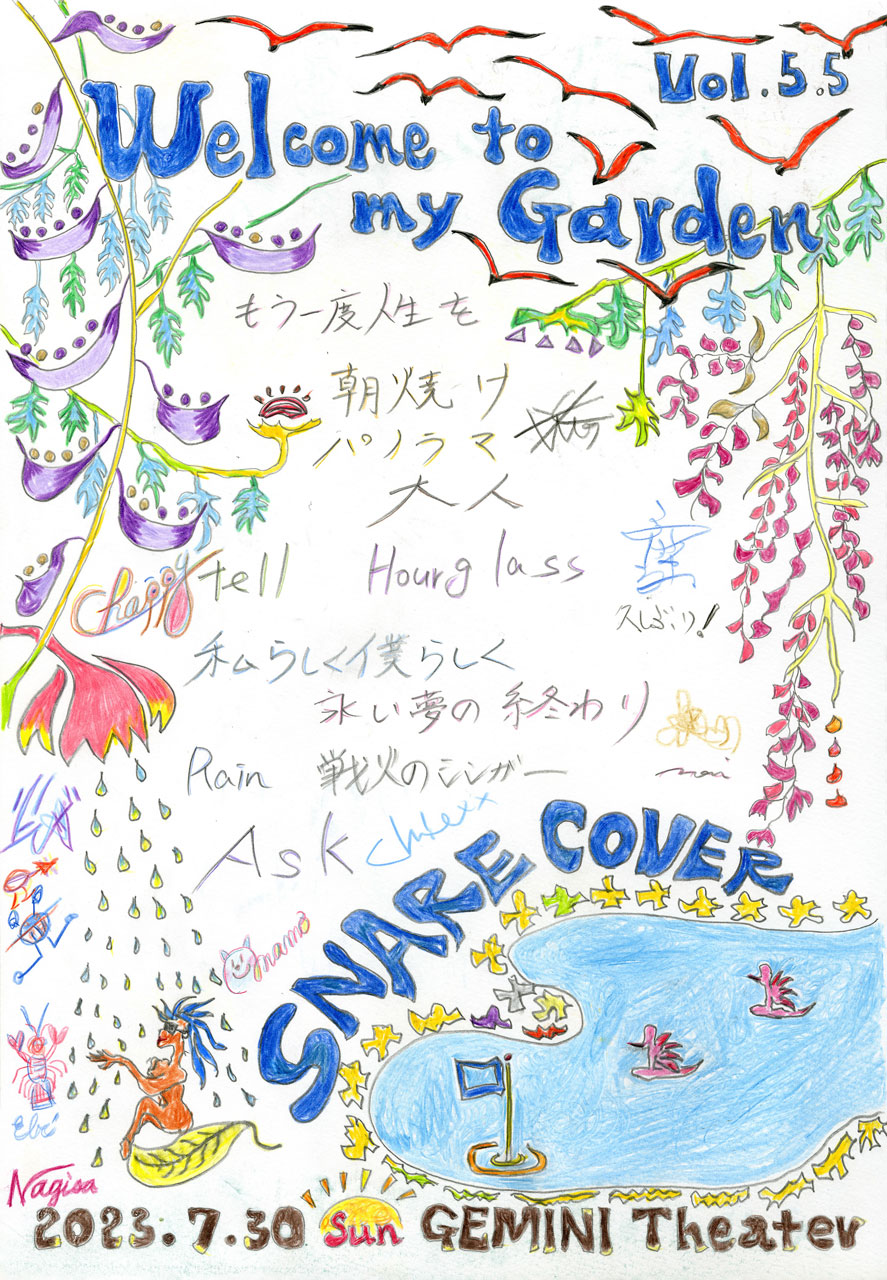 Vol.5.5
Welcome to
my Garden
もう一度人生を
朝焼け
パノラマ
大人
tell Hourglass
久しぶり!
私らしく僕らしく
永い夢の終わり
Rain 戦火のシンガー
Ask
SNARE COVER
mamo
Ebi
Nagisa
2023.7.30 Sun GEMINI Theater